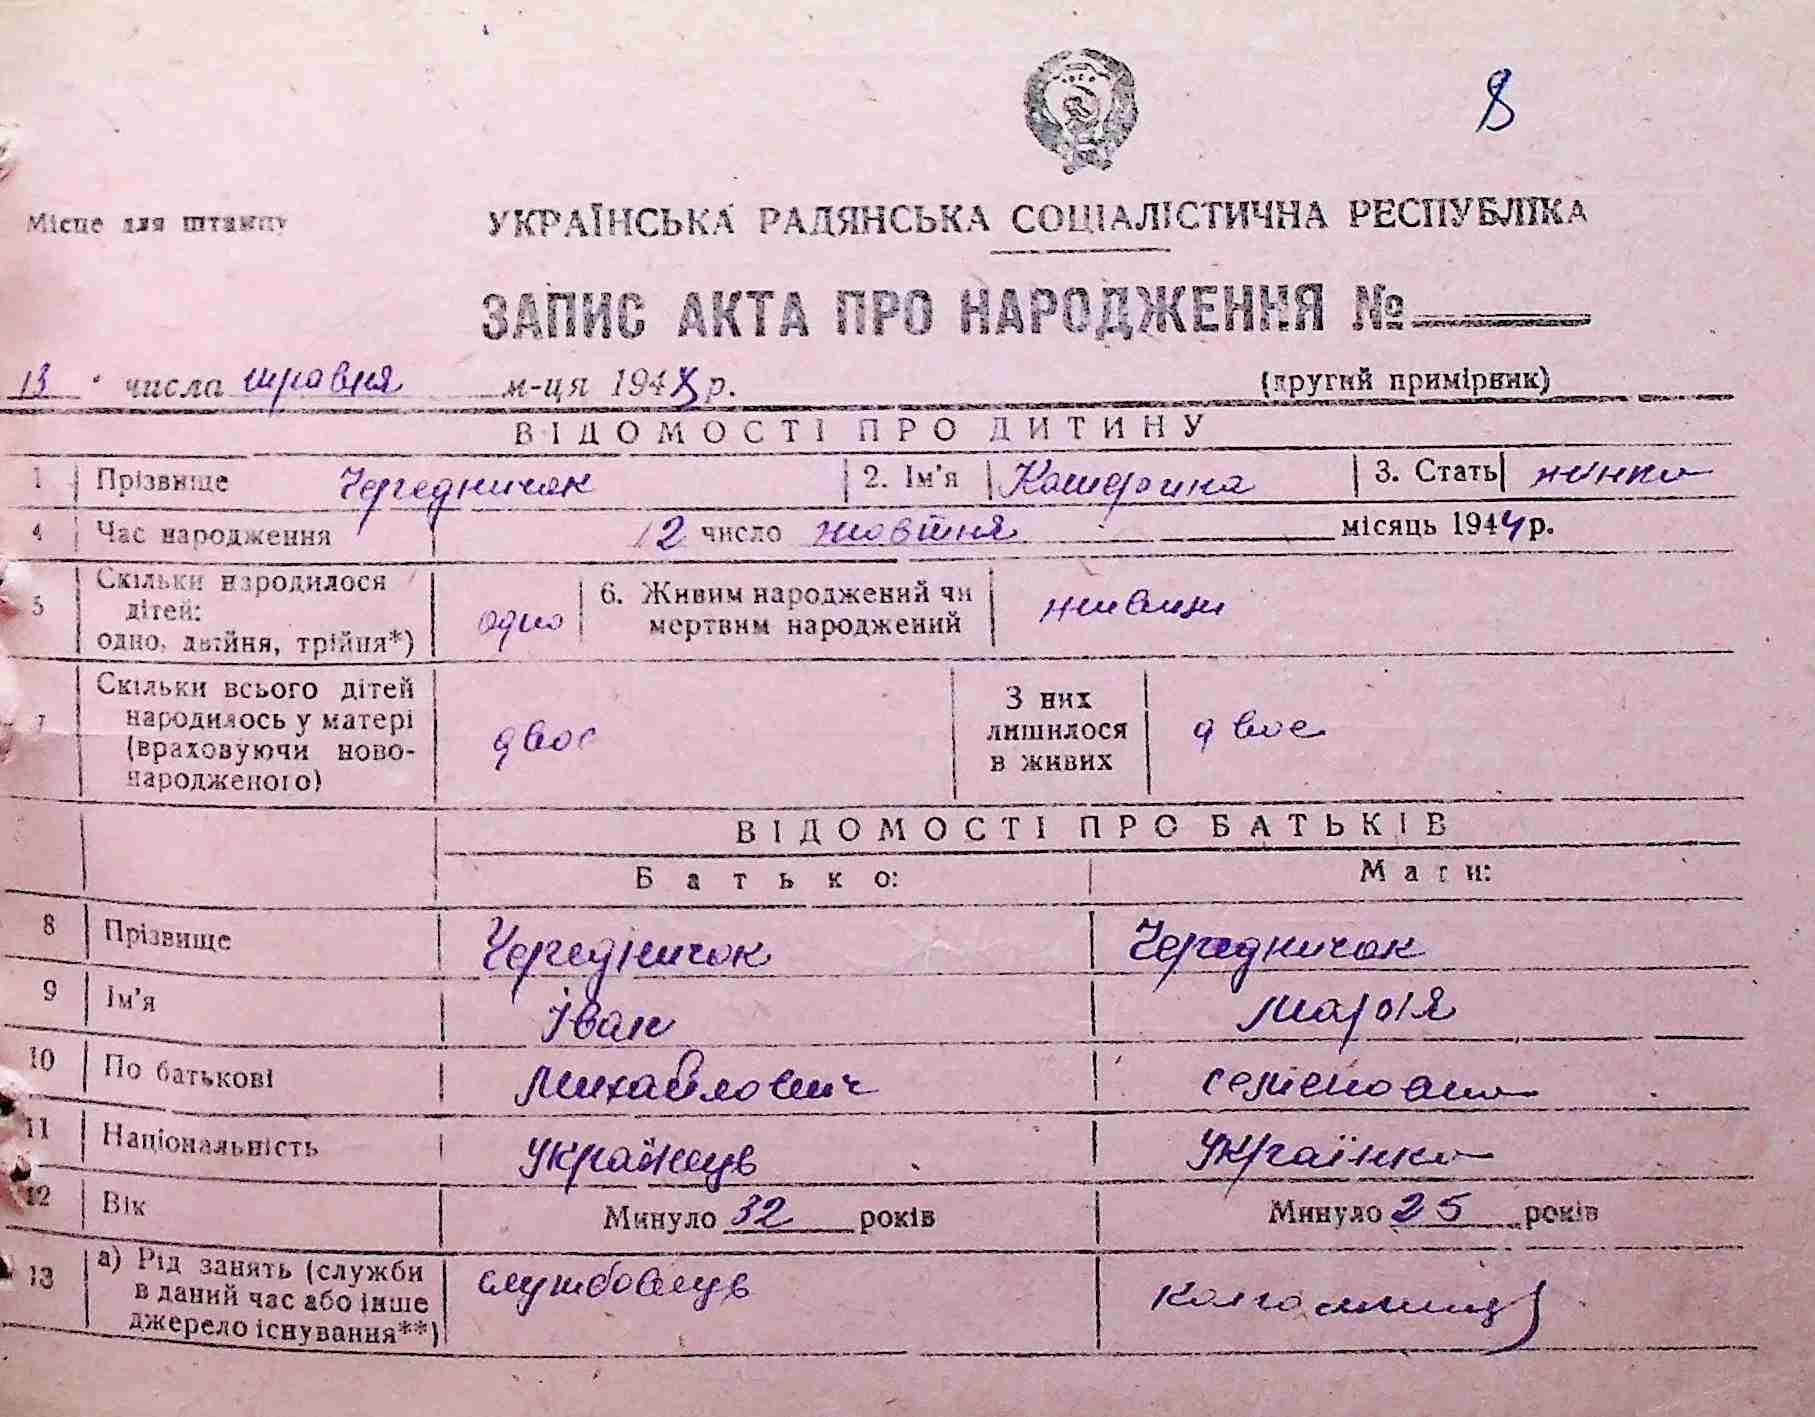 8
Місце для штампу
УКРАЇНСЬКА РАДЯНСЬКА СОЦІАЛІСТИЧНА РЕСПУБЛІКА
ЗАПИС АКТА ПРО НАРОДЖЕННЯ №
13 числа травня м-ця 194 р. (другий примірник)
ВІДОМОСТІ ПРО ДИТИНУ
1 Прізвище Чередничок 2. Ім'я Катерина 3. Стать жінка
4 Час народження 12 число жовтня місяць 1944 р.
5 Скільки народилося дітей: одно, двійня, трійня*) одно 6. Живим народжений чи мертвим народжений живим
7 Скільки всього дітей народилось у матері (враховуючи новонародженого) двоє З них лишилося в живих двоє
ВІДОМОСТІ ПРО БАТЬКІВ
Батько: Мати:
8 Прізвище Чередничок Чередничок
9 Ім'я Іван Марія
10 По батькові Михайлович Семеновна
11 Національність Українець Українка
12 Вік Минуло 32 років Минуло 25 років
13 а) Рід занять (служби в даний час або інше джерело існування**) службовець колгоспниця